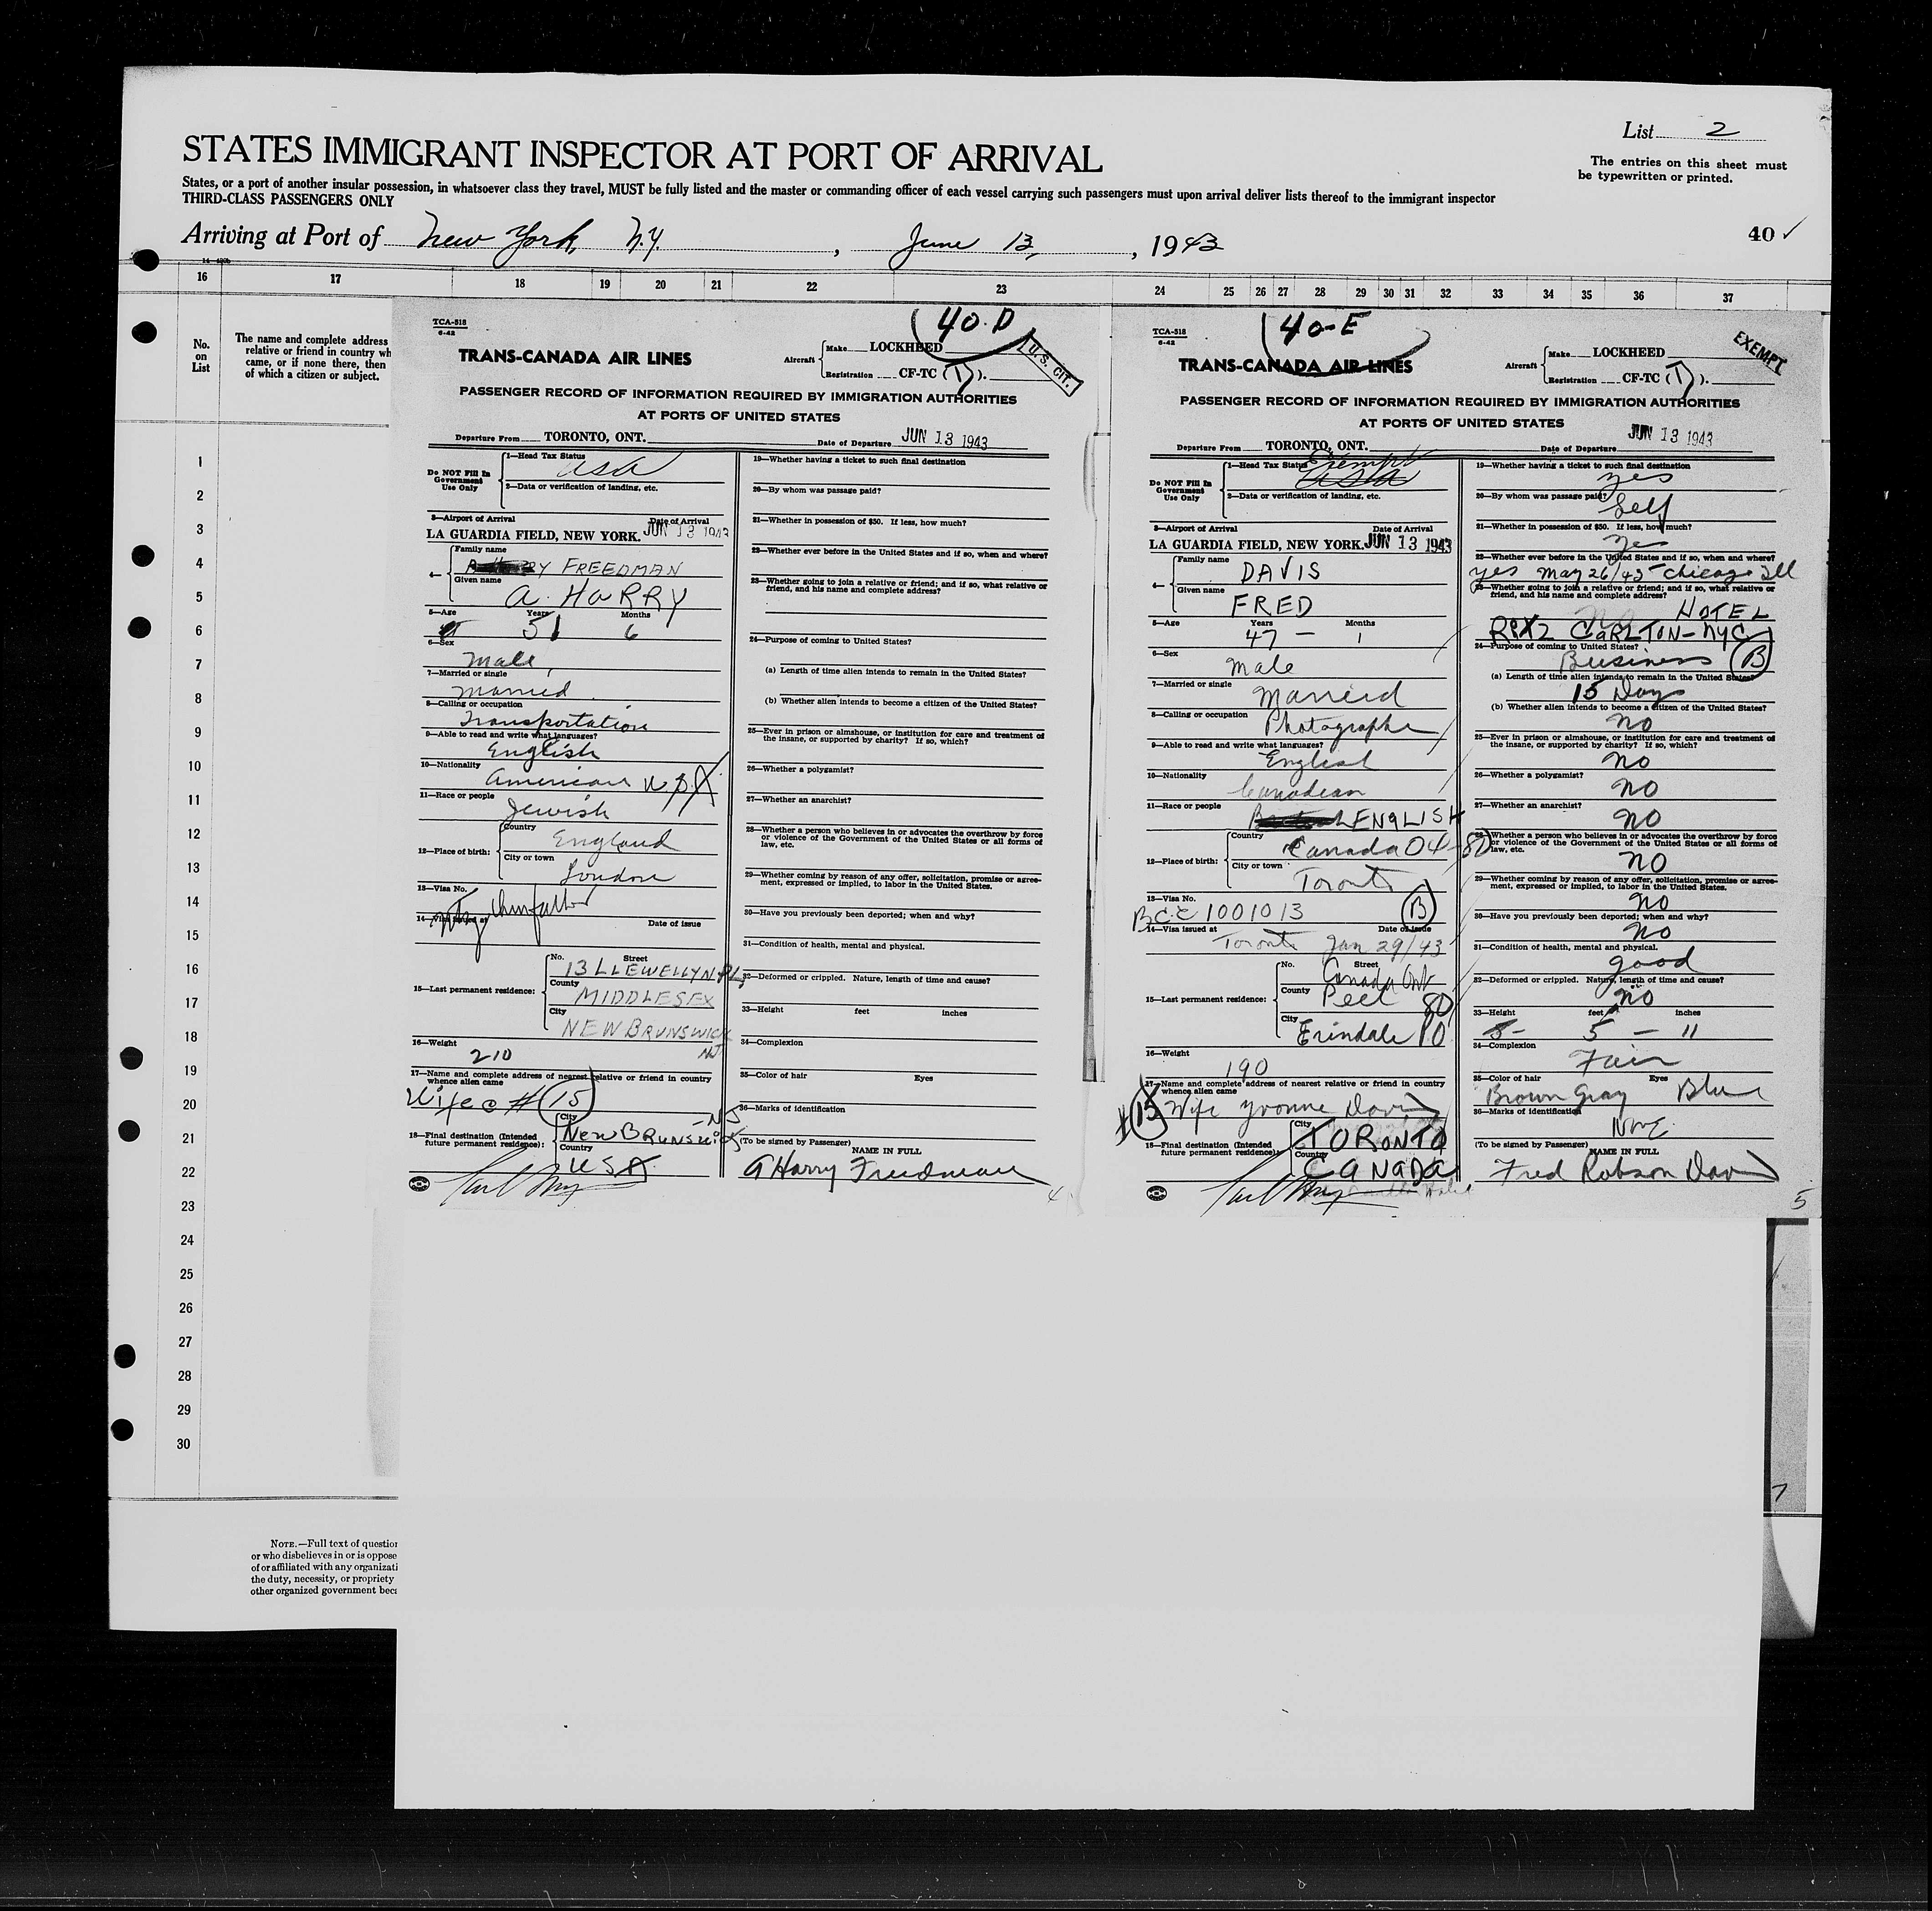 List 2
STATES IMMIGRANT INSPECTOR AT PORT OF ARRIVAL
The entries on this sheet must
be typewritten or printed.
States, or a port of another insular possession, in whatsoever class they travel, MUST be fully listed and the master or commanding officer of each vessel carrying such passengers must upon arrival deliver lists thereof to the immigrant inspector
THIRD-CLASS PASSENGERS ONLY
Arriving at Port of New York N.Y. , June 13, , 1943
40 ✓
16 17 18 19 20 21 22 23 24 25 26 27 28 29 30 31 32 33 34 35 36 37
No.
on
List
The name and complete address
relative or friend in country wh
came, or if none there, then
of which a citizen or subject.
1
2
3
4
5
6
7
8
9
10
11
12
13
14
15
16
17
18
19
20
21
22
23
24
25
26
27
28
29
30
NOTE.—Full text of question
or who disbelieves in or is oppose
of or affiliated with any organizati
the duty, necessity, or propriety
other organized government beca
TCA-518
6-42
40-D
U. S. CIT.
TRANS-CANADA AIR LINES
Aircraft
Make LOCKHEED
Registration CF-TC (T).
PASSENGER RECORD OF INFORMATION REQUIRED BY IMMIGRATION AUTHORITIES
AT PORTS OF UNITED STATES
Departure From TORONTO, ONT.
Date of Departure JUN 13 1943
Do NOT Fill In
Government
Use Only
1—Head Tax Status
USA
2—Data or verification of landing, etc.
3—Airport of Arrival Date of Arrival
LA GUARDIA FIELD, NEW YORK. JUN 13 1943
4—
Family name
FREEDMAN
Given name
A. HARRY
5—Age Years Months
51 6
6—Sex
Male
7—Married or single
Married
8—Calling or occupation
Transportation
9—Able to read and write what languages?
English
10—Nationality
American USA
11—Race or people
Jewish
12—Place of birth:
Country
England
City or town
London
13—Visa No.
14—Visa issued at Date of issue
15—Last permanent residence:
No. Street
13 LLEWELLYN PL
County
MIDDLESEX
City
NEW BRUNSWICK
NJ
16—Weight
210
17—Name and complete address of nearest relative or friend in country
whence alien came
Wife @ # 15
18—Final destination (Intended
future permanent residence):
City
NEW BRUNSWICK - NJ
Country
USA
19—Whether having a ticket to such final destination
20—By whom was passage paid?
21—Whether in possession of $50. If less, how much?
22—Whether ever before in the United States and if so, when and where?
23—Whether going to join a relative or friend; and if so, what relative or
friend, and his name and complete address?
24—Purpose of coming to United States?
(a) Length of time alien intends to remain in the United States?
(b) Whether alien intends to become a citizen of the United States?
25—Ever in prison or almshouse, or institution for care and treatment of
the insane, or supported by charity? If so, which?
26—Whether a polygamist?
27—Whether an anarchist?
28—Whether a person who believes in or advocates the overthrow by force
or violence of the Government of the United States or all forms of
law, etc.
29—Whether coming by reason of any offer, solicitation, promise or agree-
ment, expressed or implied, to labor in the United States.
30—Have you previously been deported; when and why?
31—Condition of health, mental and physical.
32—Deformed or crippled. Nature, length of time and cause?
33—Height feet inches
34—Complexion
35—Color of hair Eyes
36—Marks of identification
(To be signed by Passenger)
NAME IN FULL
A Harry Freedman
4
TCA-518
6-42
40-E
EXEMPT
TRANS-CANADA AIR LINES
Aircraft
Make LOCKHEED
Registration CF-TC (T).
PASSENGER RECORD OF INFORMATION REQUIRED BY IMMIGRATION AUTHORITIES
AT PORTS OF UNITED STATES
Departure From TORONTO, ONT.
Date of Departure JUN 13 1943
Do NOT Fill In
Government
Use Only
1—Head Tax Status
Exempt
2—Data or verification of landing, etc.
3—Airport of Arrival Date of Arrival
LA GUARDIA FIELD, NEW YORK. JUN 13 1943
4—
Family name
DAVIS
Given name
FRED
5—Age Years Months
47 — 1
6—Sex
Male
7—Married or single
Married
8—Calling or occupation Photographer
9—Able to read and write what languages?
English
10—Nationality
Canadian
11—Race or people
ENGLISH
12—Place of birth:
Country
Canada 04-80
City or town
Toronto
13—Visa No.
BCC 1001013 B
14—Visa issued at Date of issue
Toronto Jan 29/43
15—Last permanent residence:
No. Street
Canada Ont
County
Peel 80
City
Erindale PO
16—Weight
190
17—Name and complete address of nearest relative or friend in country
whence alien came
#15 Wife Yvonne Davis
18—Final destination (Intended
future permanent residence):
City
TORONTO
Country
CANADA
19—Whether having a ticket to such final destination
yes
20—By whom was passage paid?
Self
21—Whether in possession of $50. If less, how much?
yes
22—Whether ever before in the United States and if so, when and where?
yes May 26/43 Chicago Ill
23—Whether going to join a relative or friend; and if so, what relative or
friend, and his name and complete address?
No HOTEL
RITZ CARLTON - NYC
24—Purpose of coming to United States?
Business B
(a) Length of time alien intends to remain in the United States?
15 Days
(b) Whether alien intends to become a citizen of the United States?
no
25—Ever in prison or almshouse, or institution for care and treatment of
the insane, or supported by charity? If so, which?
no
26—Whether a polygamist?
no
27—Whether an anarchist?
no
28—Whether a person who believes in or advocates the overthrow by force
or violence of the Government of the United States or all forms of
law, etc.
no
29—Whether coming by reason of any offer, solicitation, promise or agree-
ment, expressed or implied, to labor in the United States.
no
30—Have you previously been deported; when and why?
no
31—Condition of health, mental and physical.
good
32—Deformed or crippled. Nature, length of time and cause?
no
33—Height feet inches
5 — 11
34—Complexion
Fair
35—Color of hair Eyes
Brown Gray Blue
36—Marks of identification
None
(To be signed by Passenger)
NAME IN FULL
Fred Robson Davis
5
7